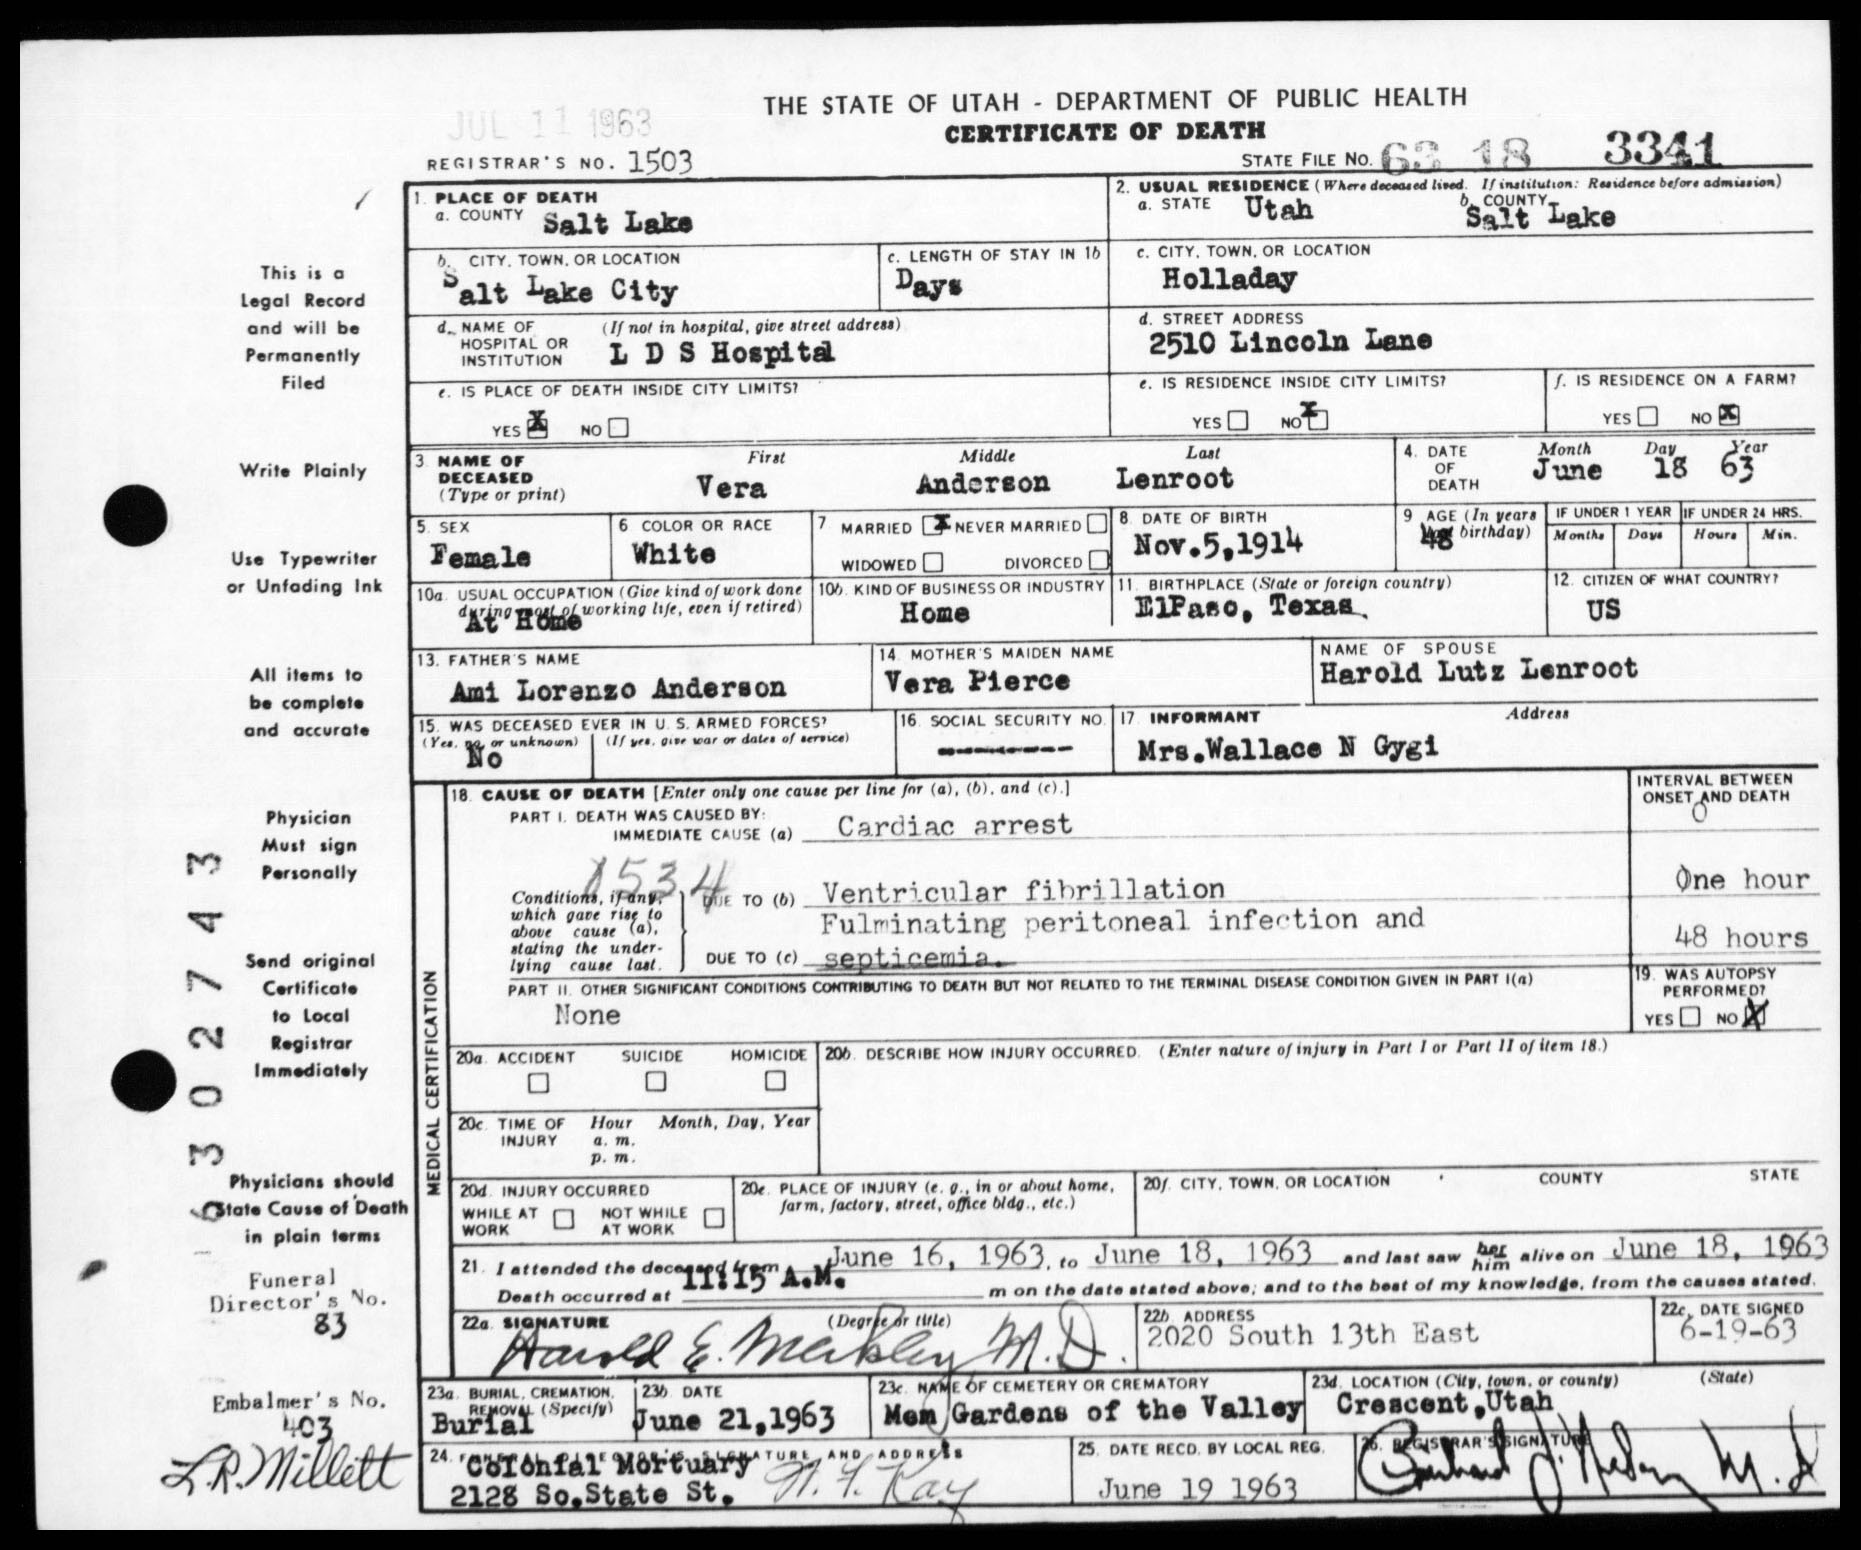 JUL 11 1963
THE STATE OF UTAH - DEPARTMENT OF PUBLIC HEALTH
CERTIFICATE OF DEATH
REGISTRAR'S NO. 1503
STATE FILE NO. 63 18 3341
This is a
Legal Record
and will be
Permanently
Filed
Write Plainly
Use Typewriter
or Unfading Ink
All items to
be complete
and accurate
Physician
Must sign
Personally
Send original
Certificate
to Local
Registrar
Immediately
Physicians should
State Cause of Death
in plain terms
Funeral
Director's No.
83
Embalmer's No.
403
L.R. Millett
6302743
1. PLACE OF DEATH
a. COUNTY Salt Lake
2. USUAL RESIDENCE (Where deceased lived. If institution: Residence before admission)
a. STATE Utah b. COUNTY Salt Lake
b. CITY, TOWN, OR LOCATION
Salt Lake City
c. LENGTH OF STAY IN 1b
Days
c. CITY, TOWN, OR LOCATION
Holladay
d. NAME OF HOSPITAL OR INSTITUTION (If not in hospital, give street address)
L D S Hospital
d. STREET ADDRESS
2510 Lincoln Lane
e. IS PLACE OF DEATH INSIDE CITY LIMITS?
YES X NO
e. IS RESIDENCE INSIDE CITY LIMITS?
YES NO X
f. IS RESIDENCE ON A FARM?
YES NO X
3. NAME OF DECEASED (Type or print)
First Middle Last
Vera Anderson Lenroot
4. DATE OF DEATH Month Day Year
June 18 63
5. SEX
Female
6 COLOR OR RACE
White
7 MARRIED X NEVER MARRIED
WIDOWED DIVORCED
8. DATE OF BIRTH
Nov.5,1914
9 AGE (In years last birthday)
48
IF UNDER 1 YEAR IF UNDER 24 HRS.
Months Days Hours Min.
10a. USUAL OCCUPATION (Give kind of work done during most of working life, even if retired)
At Home
10b. KIND OF BUSINESS OR INDUSTRY
Home
11. BIRTHPLACE (State or foreign country)
ElPaso, Texas.
12. CITIZEN OF WHAT COUNTRY?
US
13. FATHER'S NAME
Ami Lorenzo Anderson
14. MOTHER'S MAIDEN NAME
Vera Pierce
NAME OF SPOUSE
Harold Lutz Lenroot
15. WAS DECEASED EVER IN U. S. ARMED FORCES?
(Yes, no, or unknown) (If yes, give war or dates of service)
No
16. SOCIAL SECURITY NO.
----------
17. INFORMANT Address
Mrs.Wallace N Gygi
MEDICAL CERTIFICATION
18. CAUSE OF DEATH [Enter only one cause per line for (a), (b), and (c).]
INTERVAL BETWEEN ONSET AND DEATH
PART I. DEATH WAS CAUSED BY:
IMMEDIATE CAUSE (a) Cardiac arrest
0
Conditions, if any, which gave rise to above cause (a), stating the underlying cause last.
DUE TO (b) Ventricular fibrillation
One hour
Fulminating peritoneal infection and
48 hours
DUE TO (c) septicemia.
PART II. OTHER SIGNIFICANT CONDITIONS CONTRIBUTING TO DEATH BUT NOT RELATED TO THE TERMINAL DISEASE CONDITION GIVEN IN PART I(a)
None
19. WAS AUTOPSY PERFORMED?
YES NO X
20a. ACCIDENT SUICIDE HOMICIDE
20b. DESCRIBE HOW INJURY OCCURRED. (Enter nature of injury in Part I or Part II of item 18.)
20c. TIME OF INJURY Hour Month, Day, Year
a. m.
p. m.
20d. INJURY OCCURRED
WHILE AT WORK NOT WHILE AT WORK
20e. PLACE OF INJURY (e. g., in or about home, farm, factory, street, office bldg., etc.)
20f. CITY, TOWN, OR LOCATION COUNTY STATE
21. I attended the deceased from June 16, 1963, to June 18, 1963 and last saw her him alive on June 18, 1963
Death occurred at 11:15 A.M. m on the date stated above; and to the best of my knowledge, from the causes stated.
22a. SIGNATURE (Degree or title)
Harold E. Merkley M.D.
22b. ADDRESS
2020 South 13th East
22c. DATE SIGNED
6-19-63
23a. BURIAL, CREMATION, REMOVAL (Specify)
Burial
23b DATE
June 21,1963
23c. NAME OF CEMETERY OR CREMATORY
Mem Gardens of the Valley
23d. LOCATION (City, town, or county) (State)
Crescent,Utah
24. FUNERAL DIRECTOR'S SIGNATURE AND ADDRESS
Colonial Mortuary
2128 So.State St.
25. DATE RECD. BY LOCAL REG.
June 19 1963
26. REGISTRAR'S SIGNATURE